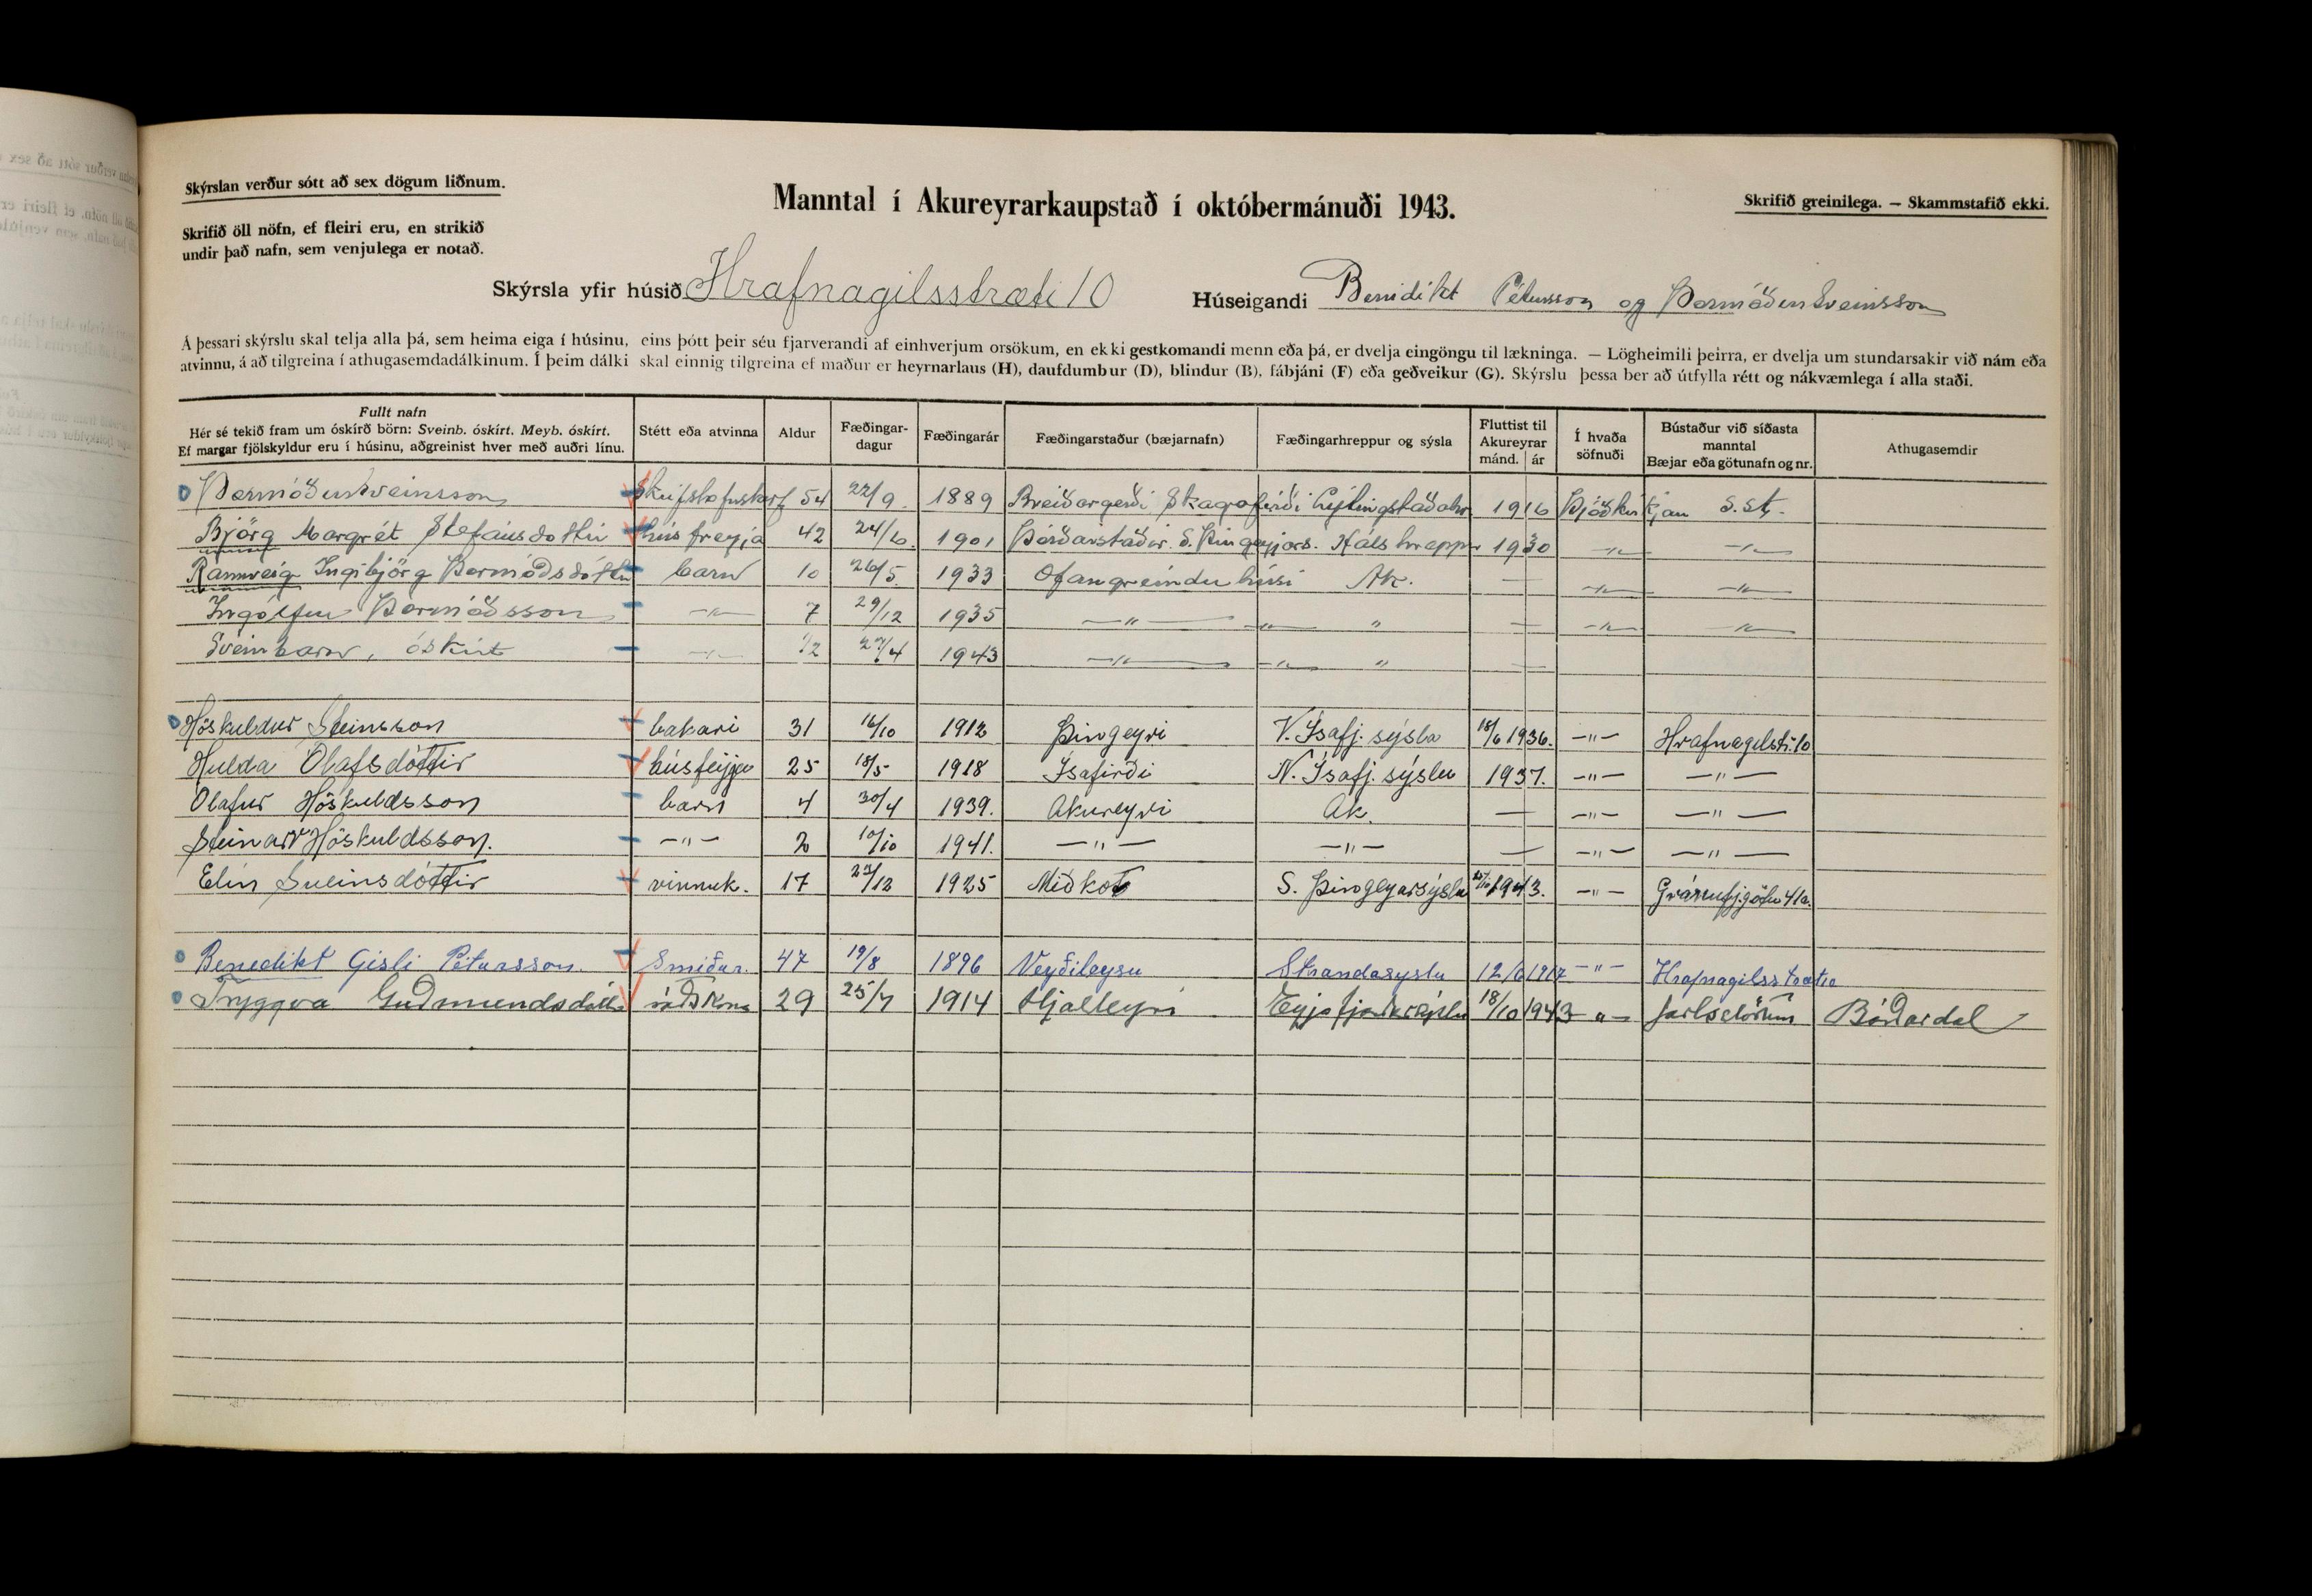 Skýrslan verður sótt að sex dögum liðnum.
Manntal í Akureyrarkaupstað í októbermánuði 1943.
Skrifið greinilega. — Skammstafið ekki.
Skrifið öll nöfn, ef fleiri eru, en strikið
undir það nafn, sem venjulega er notað.
Skýrsla yfir húsið Hrafnagilsstræti 10 Húseigandi Benidikt Pétursson og Þormóður Sveinsson
Á þessari skýrslu skal telja alla þá, sem heima eiga í húsinu, eins þótt þeir séu fjarverandi af einhverjum orsökum, en ekki gestkomandi menn eða þá, er dvelja eingöngu til lækninga. — Lögheimili þeirra, er dvelja um stundarsakir við nám eða
atvinnu, á að tilgreina í athugasemdadálkinum. Í þeim dálki skal einnig tilgreina ef maður er heyrnarlaus (H), daufdumbur (D), blindur (B), fábjáni (F) eða geðveikur (G). Skýrslu þessa ber að útfylla rétt og nákvæmlega í alla staði.
Fullt nafn
Hér sé tekið fram um óskírð börn: Sveinb. óskírt. Meyb. óskírt.
Ef margar fjölskyldur eru í húsinu, aðgreinist hver með auðri línu.
Stétt eða atvinna
Aldur
Fæðingar-
dagur
Fæðingarár
Fæðingarstaður (bæjarnafn)
Fæðingarhreppur og sýsla
Fluttist til
Akureyrar
mánd. ár
Í hvaða
söfnuði
Bústaður við síðasta
manntal
Bæjar eða götunafn og nr.
Athugasemdir
Þormóður Sveinsson skrifstofustarf 54 22/9 1889 Breiðargerði Skagafirði Lýtingstaðahr 1916 Þjóðkirkjan s.st.
Björg Margrét Stefánsdóttir húsfreyja 42 24/6 1901 Þórðarstaðir S. Þingeyjars. Hálshreppur 1930 —"— —"—
Rannveig Ingibjörg Þormóðsdóttir barn 10 26/5 1933 Ofangreindu húsi Ak. — —"— —"—
Ingólfur Þormóðsson —"— 7 29/12 1935 —"— —"— " — —"— —"—
Sveinbarn, óskírt —"— 1/2 27/4 1943 —"— —"— " —
Höskuldur Steinsson bakari 31 16/10 1912 Þingeyri V. Ísafj. sýsla 18/6 1936. —"— Hrafnagilstr. 10
Hulda Ólafsdóttir húsfreyja 25 18/5 1918 Ísafirði N. Ísafj. sýslu 1937. —"— —"—
Ólafur Höskuldsson barn 4 30/4 1939. Akureyri Ak. — —"— —"—
Steinarr Höskuldsson. —"— 2 10/10 1941. —"— —"— — —"— —"—
Elín Sveinsdóttir vinnuk. 17 27/12 1925 Miðkot S. Þingeyarsýslu 1943. —"— Gránufj.götu 41a.
Benedikt Gísli Pétursson. Smiður. 47 19/8 1896 Veyðileysu Strandasyslu 12/6 1917 —"— Hrafnagilsstræti
Tryggva Guðmundsdóttir ráðskona 29 25/7 1914 Hjalteyri Eyjafjarðarsýslu 18/10 1943 —"— Jarlsstöðum Bárðardal